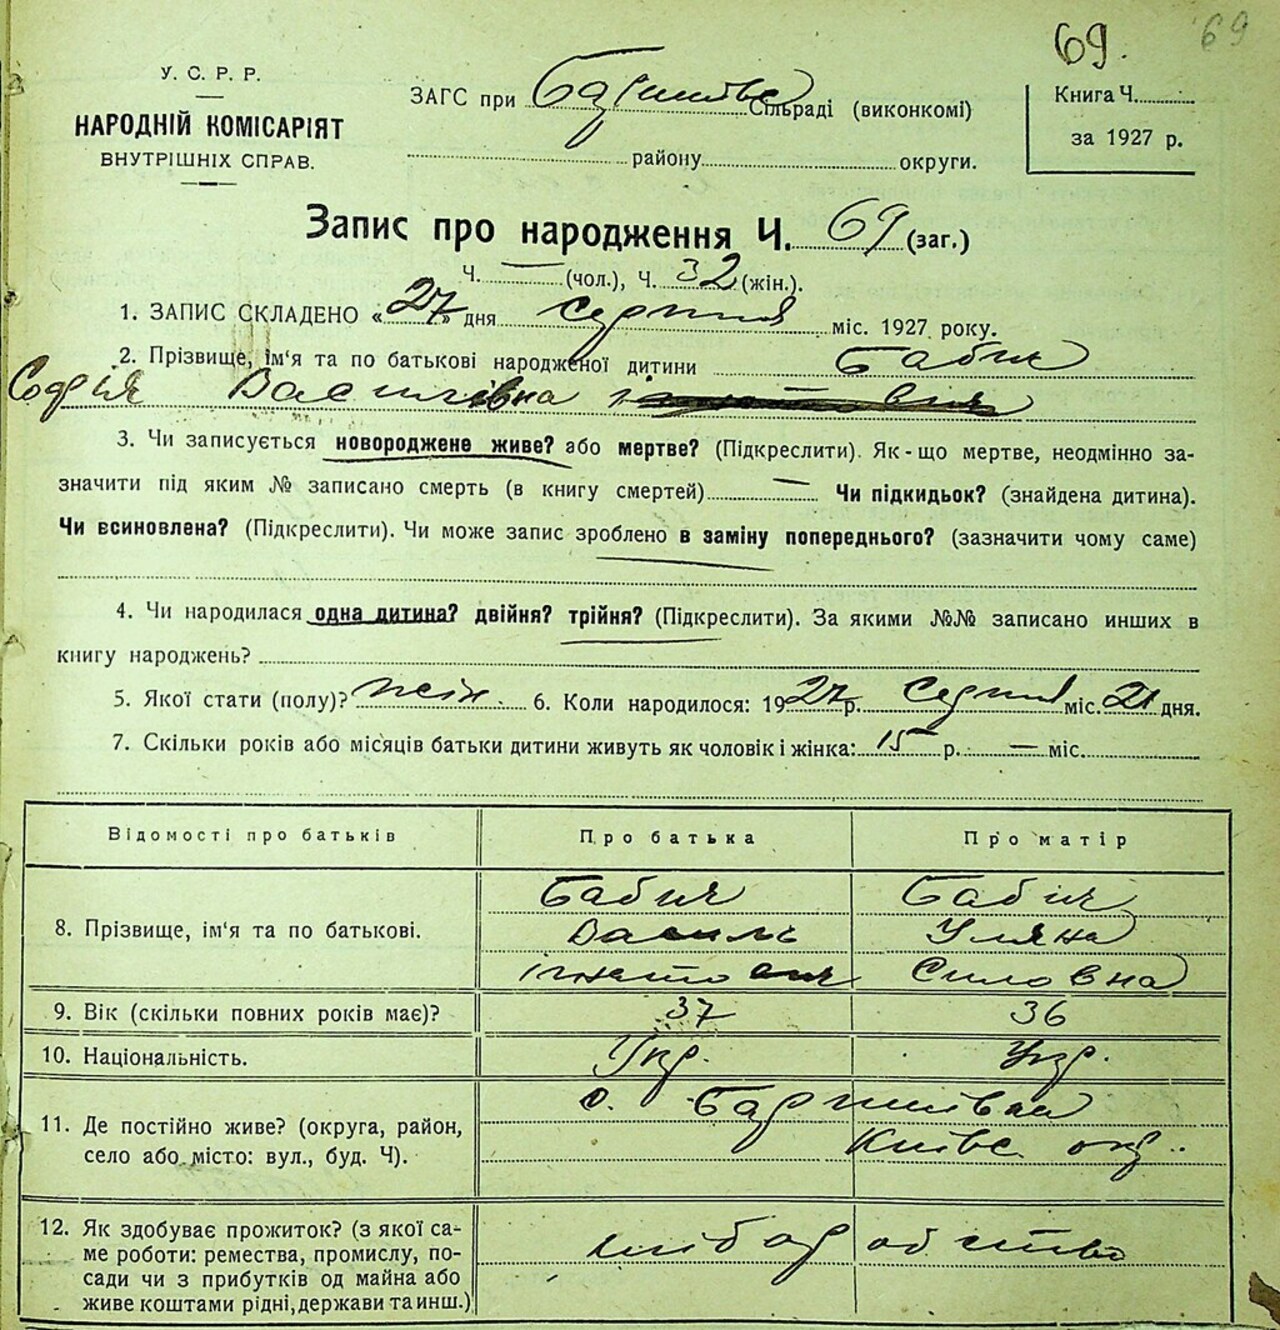 69. 69
У. С. Р. Р.
НАРОДНІЙ КОМІСАРІЯТ
ВНУТРІШНІХ СПРАВ.
ЗАГС при Баришівс Сільраді (виконкомі)
району округи.
Книга Ч.
за 1927 р.
Запис про народження Ч. 69 (заг.)
Ч. — (чол.), Ч. 32 (жін.).
1. ЗАПИС СКЛАДЕНО «27» дня серпня міс. 1927 року.
2. Прізвище, ім'я та по батькові народженої дитини Бабич
Софія Василівна
3. Чи записується новороджене живе? або мертве? (Підкреслити). Як-що мертве, неодмінно за-
значити під яким № записано смерть (в книгу смертей) — Чи підкидьок? (знайдена дитина).
Чи всиновлена? (Підкреслити). Чи може запис зроблено в заміну попереднього? (зазначити чому саме)
4. Чи народилася одна дитина? двійня? трійня? (Підкреслити). За якими №№ записано инших в
книгу народжень?
5. Якої стати (полу)? жін. 6. Коли народилося: 1927 р. Серпня міс. 21 дня.
7. Скільки років або місяців батьки дитини живуть як чоловік і жінка: 15 р. — міс.
Відомості про батьків Про батька Про матір
8. Прізвище, ім'я та по батькові.
Бабич Бабич
Василь Уляна
Ігнатович Силовна
9. Вік (скільки повних років має)? 37 36
10. Національність. Укр. Укр.
11. Де постійно живе? (округа, район,
село або місто: вул., буд. Ч).
с. Баришівка
Київс. окр.
12. Як здобуває прожиток? (з якої са-
ме роботи: ремества, промислу, по-
сади чи з прибутків од майна або
живе коштами рідні, держави та инш.)
хліборобство